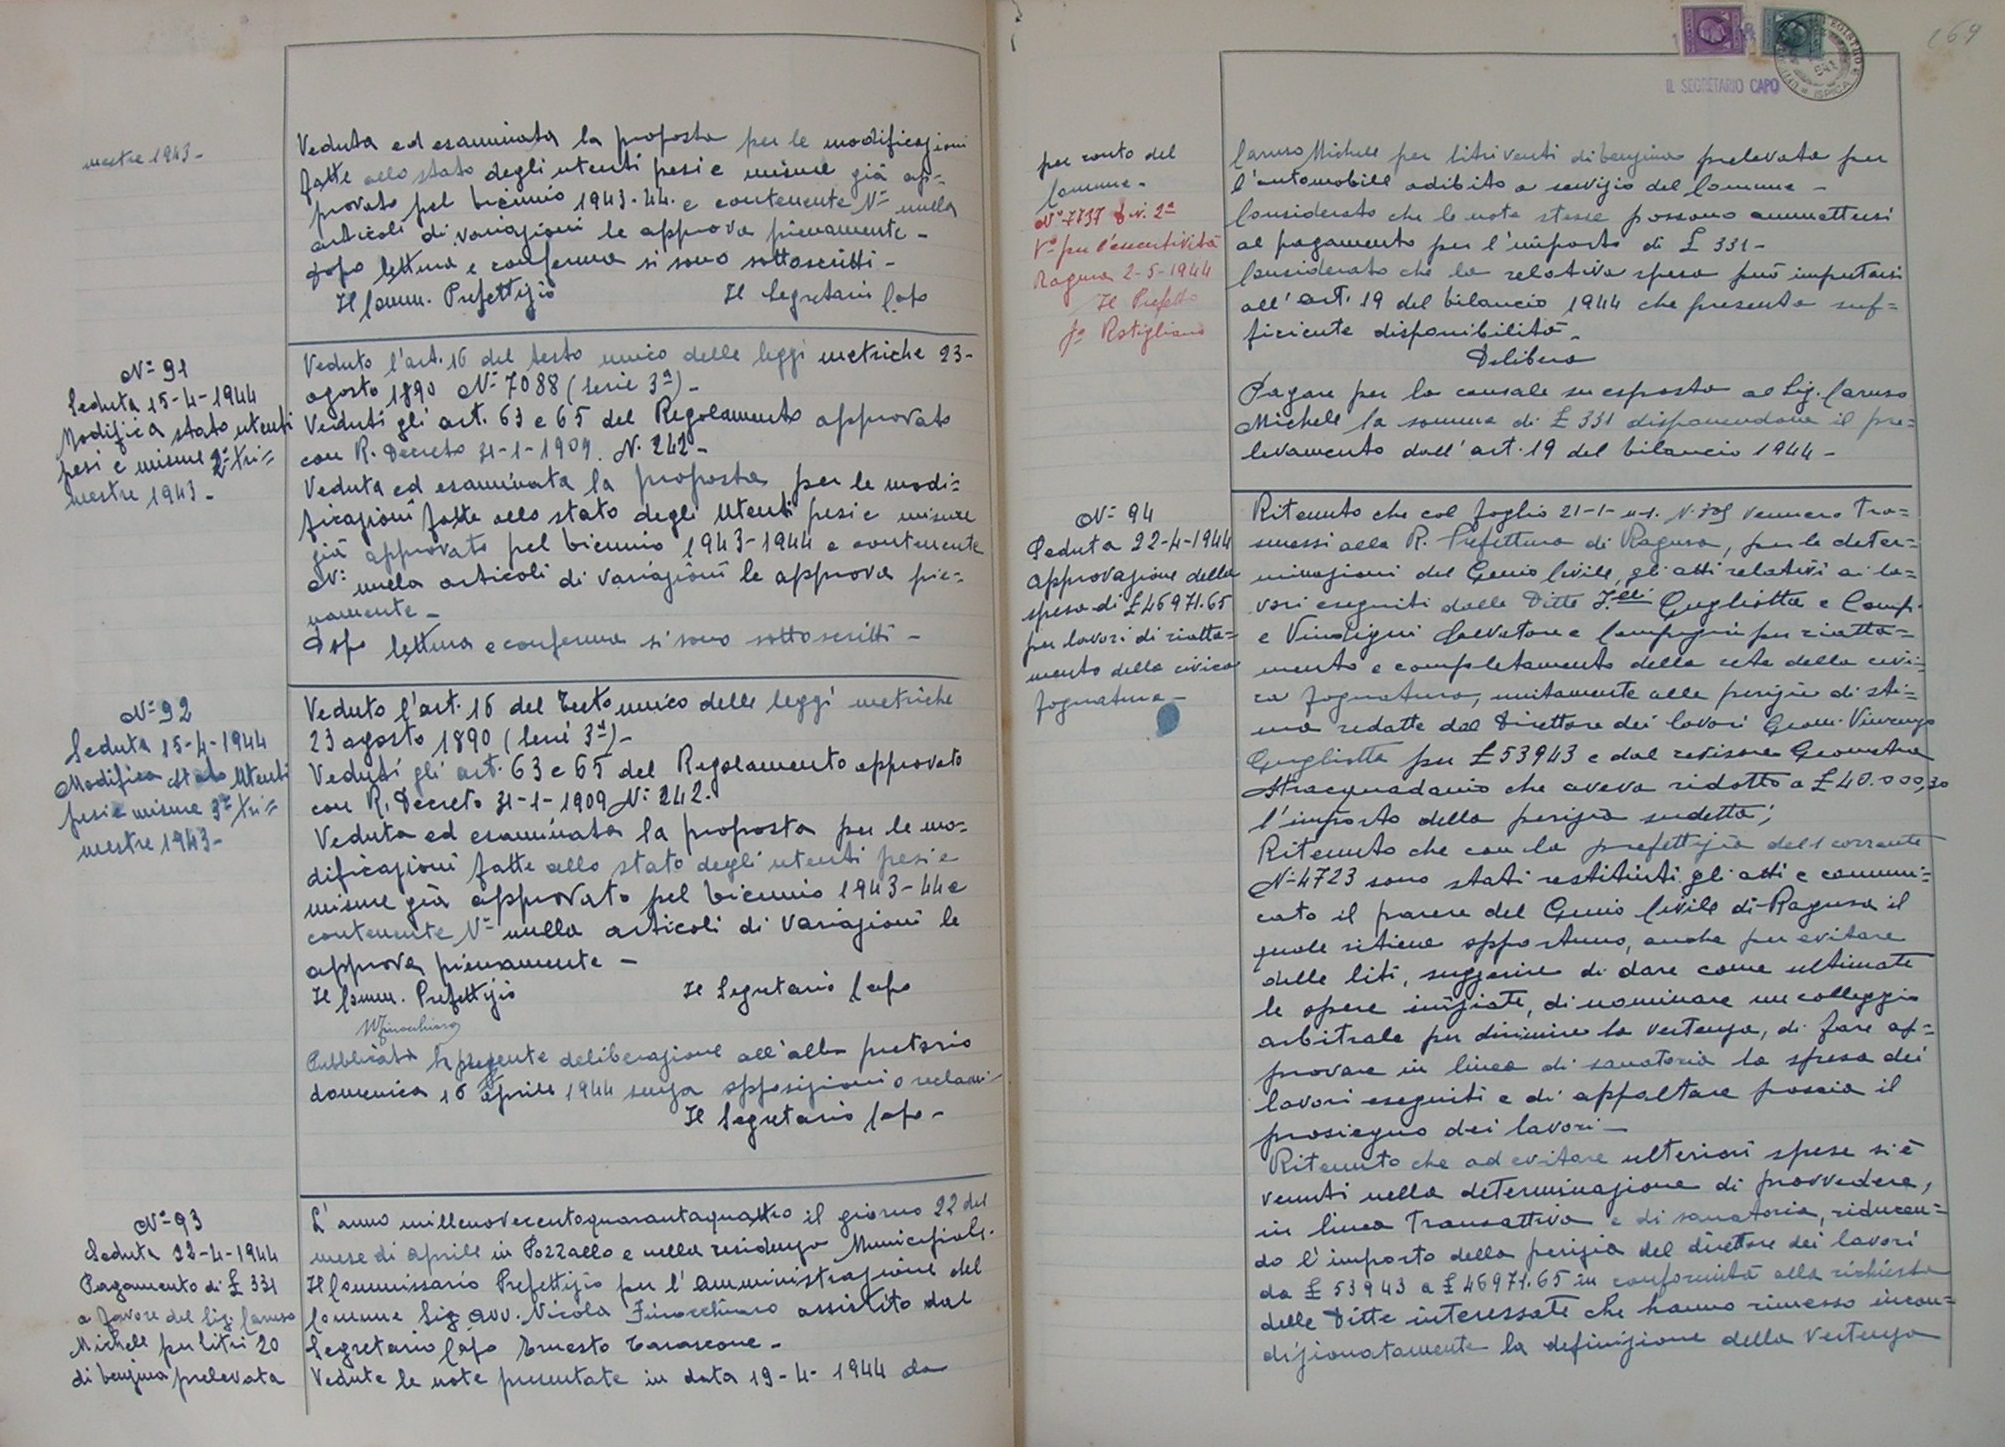 mestre 1943-
Veduta ed esaminata la proposta per le modificazioni
fatte allo stato degli utenti pesi e misure già ap=
provato pel biennio 1943-44 e contenente Nº nulla
articoli di variazioni le approva pienamente -
Dopo lettura e conferma si sono sottoscritti -
Il Comm. Prefettizio Il Segretario Capo
Nº 91
Seduta 15-4-1944
Modifica stato utenti
pesi e misure 2º tri=
mestre 1943-
Veduto l'art. 16 del testo unico delle leggi metriche 23-
agosto 1890 Nº 7088 (serie 3ª)-
Veduti gli art. 63 e 65 del Regolamento approvato
con R. Decreto 31-1-1909. N. 242-
Veduta ed esaminata la proposta per le modi=
ficazioni fatte allo stato degli utenti pesi e misure
già approvato pel biennio 1943-1944 e contenente
Nº nulla articoli di variazioni le approva pie=
namente -
Dopo lettura e conferma si sono sottoscritti -
Nº 92
Seduta 15-4-1944
Modifica stato utenti
pesi e misure 3º tri=
mestre 1943-
Veduto l'art. 16 del Testo unico delle leggi metriche
23 agosto 1890 (serie 3ª)-
Veduti gli art. 63 e 65 del Regolamento approvato
con R. Decreto 31-1-1909 Nº 242.
Veduta ed esaminata la proposta per le mo=
dificazioni fatte allo stato degli utenti pesi e
misure già approvato pel biennio 1943-44 e
contenente Nº nulla articoli di variazioni le
approva pienamente -
Il Comm. Prefettizio Il Segretario Capo
Pubblicata la presente deliberazione all'albo pretorio
domenica 16 aprile 1944 senza opposizioni o reclami-
Il Segretario Capo-
Nº 93
Seduta 22-4-1944
Pagamento di £ 331
a favore del Sig. Caruso
Michele per litri 20
di benzina prelevata
L'anno millenovecentoquarantaquattro il giorno 22 del
mese di aprile in Pozzallo e nella residenza Municipale.
Il Commissario Prefettizio per l'amministrazione del
Comune Sig. avv. Nicola Finocchiaro assistito dal
Segretario Capo Ernesto Tarascone-
Vedute le note presentate in data 19-4-1944 da
169
IL SEGRETARIO CAPO
ISPICA
per conto del
Comune-
Nº 7737 Div. 2ª
Vº per l'esecutività
Ragusa 2-5-1944
Il Prefetto
Caruso Michele per litri venti di benzina prelevata per
l'automobile adibito a servizio del Comune -
Considerato che le note stesse possono ammettersi
al pagamento per l'importo di £ 331-
Considerato che la relativa spesa può imputarsi
all'art. 19 del bilancio 1944 che presenta suf=
ficiente disponibilità-
Delibera
Pagare per la causale su esposta al Sig. Caruso
Michele la somma di £ 331 disponendone il pre=
levamento dall'art. 19 del bilancio 1944-
Nº 94
Seduta 22-4-1944
approvazione della
spesa di £ 46971.65
per lavori di riatta=
mento della civica
fognatura-
Ritenuto che col foglio 21-1- u.s. vennero tra=
smessi alla R. Prefettura di Ragusa, per le deter=
minazioni del Genio Civile, gli atti relativi ai la=
vori eseguiti dalle Ditte F.lli Gugliotta e Comp.
e Vindigni Salvatore e Compagni per riatta=
mento e completamento della rete della civi=
ca fognatura, unitamente alle perizie di sti=
ma redatte dal Direttore dei lavori Geom. Vincenzo
Gugliotta per £ 53943 e dal revisore Geometra
Stracquadanio che aveva ridotto a £ 40.000,30
l'importo della perizia sudetta;
Ritenuto che con la prefettizia del 1 corrente
Nº 4723 sono stati restituiti gli atti e comuni=
cato il parere del Genio Civile di Ragusa il
quale ritiene opportuno, anche per evitare
delle liti, suggerire di dare come ultimate
le opere iniziate, di nominare un colleggio
arbitrale per dirimere la vertenza, di fare ap=
provare in linea di sanatoria la spesa dei
lavori eseguiti e di appaltare poscia il
prosieguo dei lavori-
Ritenuto che ad evitare ulteriori spese si è
venuti nella determinazione di provvedere,
in linea transattiva e di sanatoria, riducen=
do l'importo della perizia del direttore dei lavori
da £ 53943 a £ 46971.65 in conformità alla richiesta
delle Ditte interessate che hanno rimesso incon=
dizionatamente la definizione della vertenza